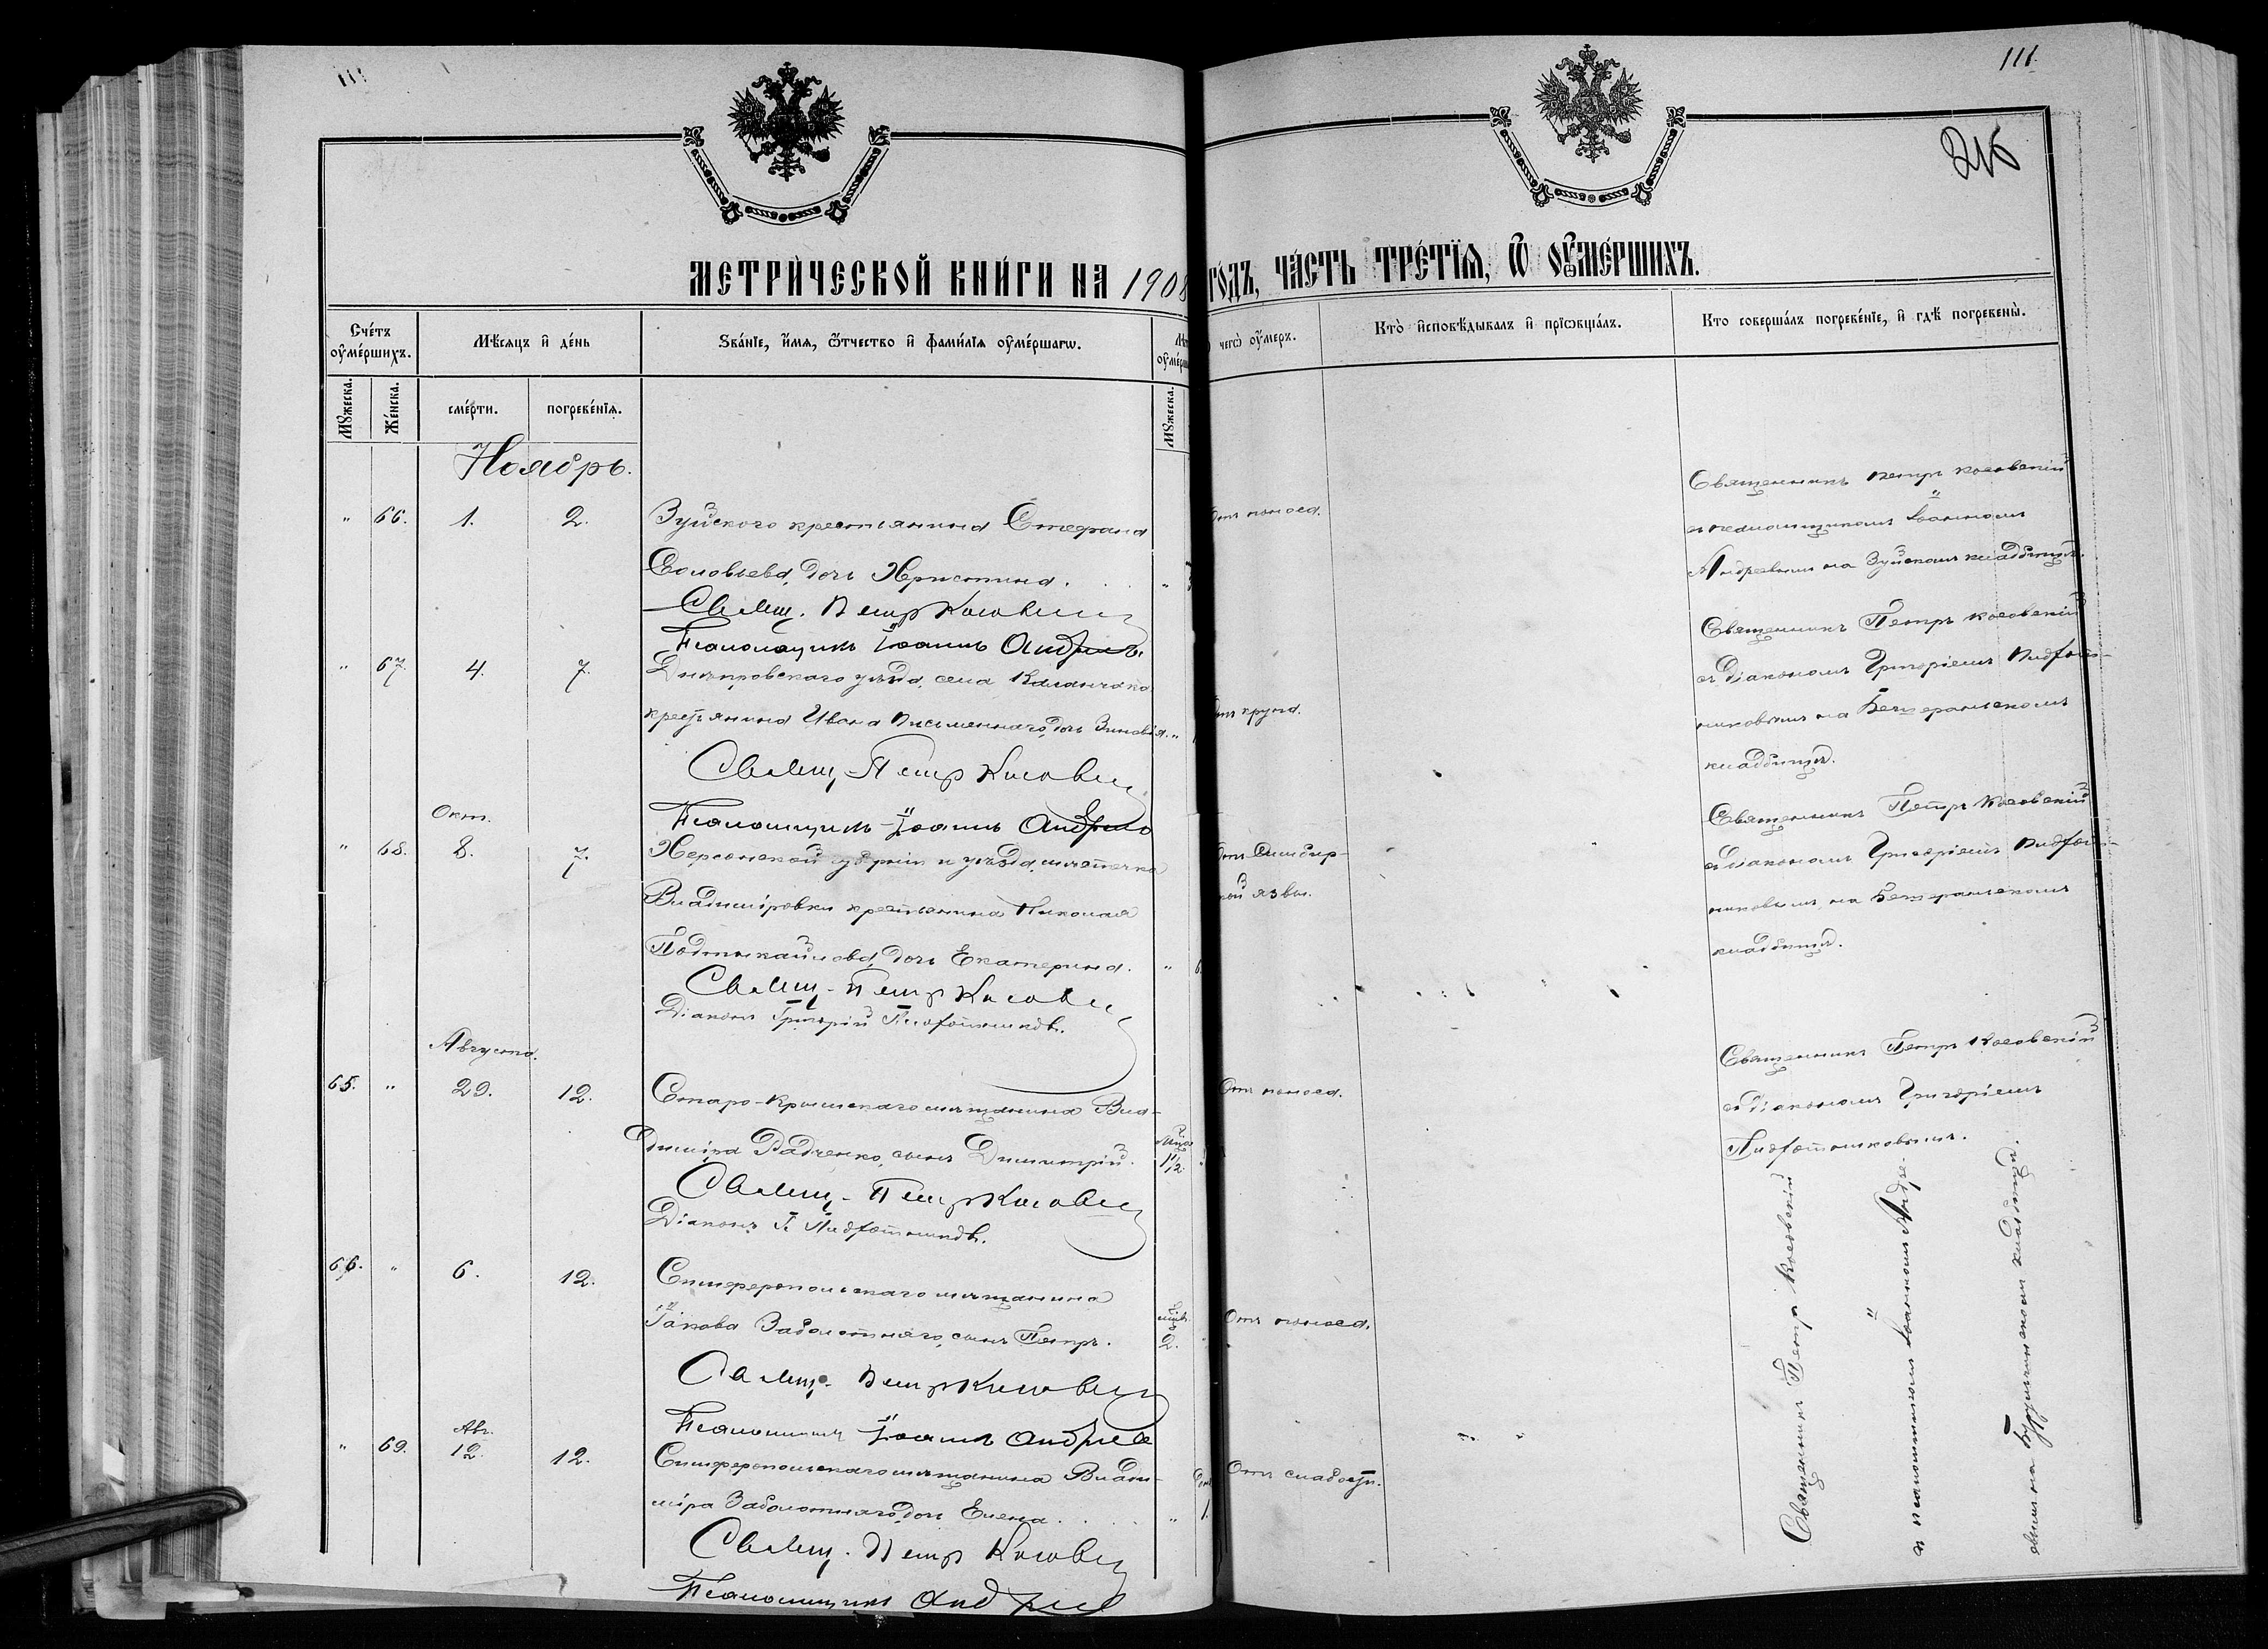 111
111.
216
МЕТРИЧЕСКОЙ КНИГИ НА 1908 ГОДЪ, ЧАСТЬ ТРЕТІЯ, Ѿ ОУМЕРШИХЪ.
Счетъ оумершихъ.
Мѣсяцъ и день
Званіе, имя, отчество и фамилія оумершагѡ.
чегѡ оумеръ.
Кто исповѣдывалъ и пріѡбщалъ.
Кто совершалъ погребеніе, и гдѣ погребены.
Мужеска.
Женска.
смерти.
погребенія.
Мужеска.
Ноябрь.
" 66. 1. 2. Зуйского крестьянина Стефана
Соловьева, дочь Христина. "
Свящ. Петръ Косовскій
Псаломщикъ Іоаннъ Андреевъ
Отъ поноса.
Священникъ Петръ Косовскій
съ псаломщикомъ Іоанномъ
Андреевымъ на Зуйскомъ кладбищѣ.
" 67. 4. 7. Днѣпровскаго уѣзда, села Каланчака
крестьянина Ивана Письменнаго, дочь Зиновія. "
Свящ. Петръ Косовскій
Псаломщикъ Іоаннъ Андреевъ
Отъ крупа.
Священникъ Петръ Косовскій
съ діакономъ Григоріемъ
на Бешеранскомъ
кладбищѣ.
Окт.
" 68. 8. 7. Херсонской губерніи и уѣзда, мѣстечка
Владиміровки крестьянина Николая
дочь Екатерина. " 6
Свящ. Петръ Косовскій
Діаконъ Григорій
Отъ Сибир-
ской язвы.
Священникъ Петръ Косовскій
съ діакономъ Григоріемъ
на Бешеранскомъ
кладбищѣ.
Августа.
65. " 29. 12. Старо-Крымскаго мѣщанина Вла-
диміра Радченко, сынъ Димитрій. 1½
Свящ. Петръ Косовскій
Діаконъ Г.
Отъ поноса.
Священникъ Петръ Косовскій
съ діакономъ Григоріемъ
66. " 6. 12. Симферопольскаго мѣщанина
Іакова Заболотняго, сынъ Петръ. 2.
Свящ. Петръ Косовскій
Псаломщикъ Іоаннъ Андреевъ
Отъ поноса.
Авг.
" 69. 12. 12. Симферопольскаго мѣщанина Влади-
міра Заболотняго, дочь Елена. " 1.
Свящ. Петръ Косовскій
Псаломщикъ Андреевъ
Отъ слабости.
Священникъ Петръ Косовскій
съ псаломщикомъ Іоанномъ Андре-
евымъ на кладбищѣ.